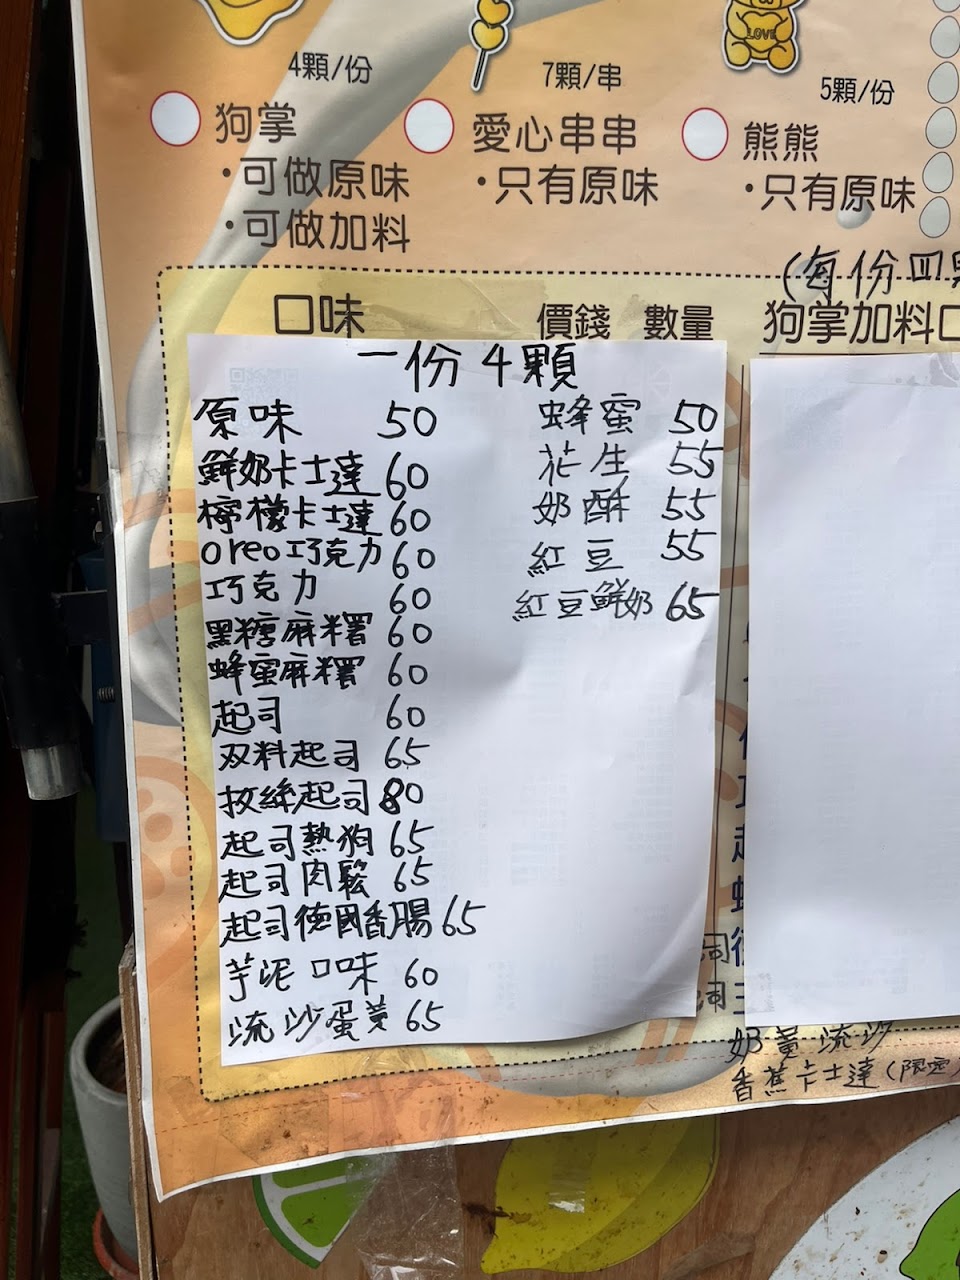 LOVE
4顆/份
7顆/串
5顆/份
狗掌
・可做原味
・可做加料
愛心串串
・只有原味
熊熊
・只有原味
(每份四
口味 價錢 數量 狗掌加料口
一份4顆
原味 50
鮮奶卡士達 60
檸檬卡士達 60
oreo巧克力 60
巧克力 60
黑糖麻糬 60
蜂蜜麻糬 60
起司 60
双料起司 65
拔絲起司 80
起司熱狗 65
起司肉鬆 65
起司德國香腸 65
芋泥口味 60
流沙蛋黃 65
蜂蜜 50
花生 55
奶酥 55
紅豆 55
紅豆鮮奶 65
司
司
奶黃流沙
香蕉卡士達(限定)